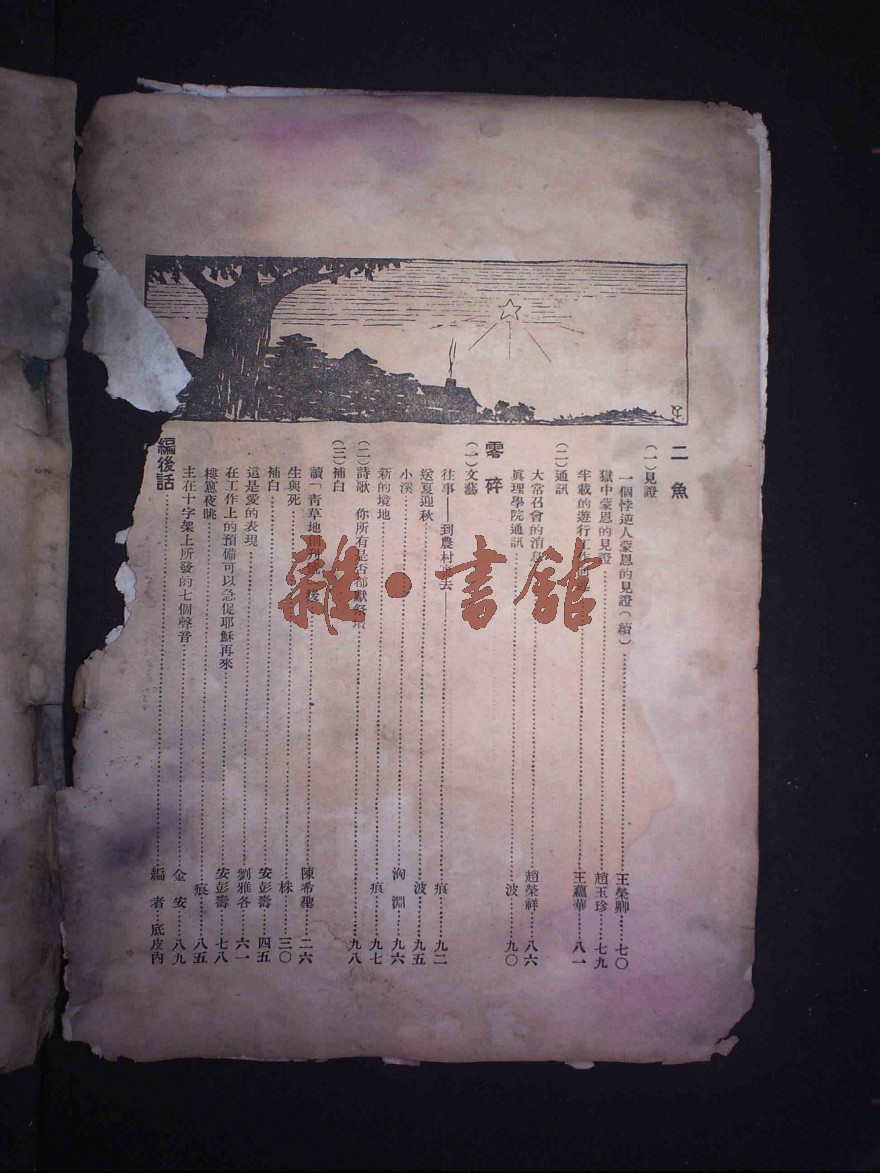 二魚
(一)見證
一個悖逆人蒙恩的見證(續)……王榮卿……七〇
獄中蒙恩的見證……趙玉珍……七九
半載的遊行工作……王蘊華……八一
(二)通訊
大常召會的消息……趙榮祥……八六
眞理學院通訊……波……九〇
零碎
(一)文藝
往事——到農村裏去——……痕……九二
送夏迎秋……波……九五
小溪……洵淵……九六
新的境地……痕……九七
(二)詩歌 你所有是否都獻祭壇……九八
(三)補白
讀「靑草地創刊號」後……陳希……二六
生與死……株……三〇
補白……安彭壽……四五
這是愛的表現……劉雅各……六一
在工作上的預備可以急促耶穌再來……安彭壽……七八
樓窻夜眺……痕……八五
主在十字架上所發的七個聲音……金安……八九
編後話……編者……底皮內
雜·書館